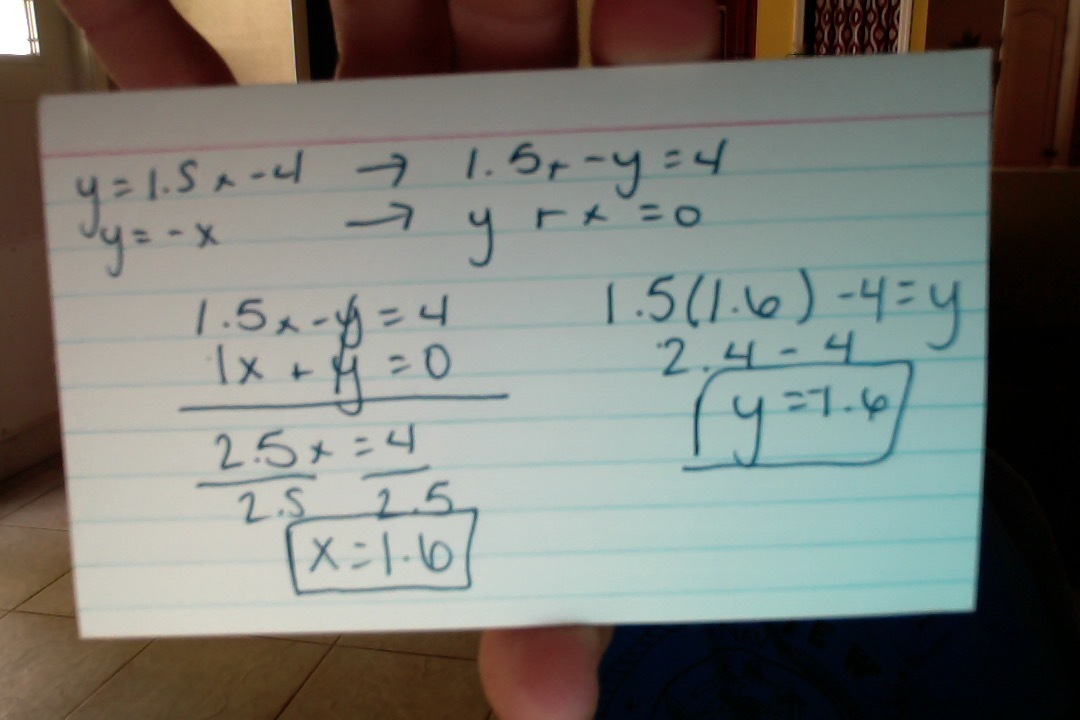 y=1.5x-4 → 1.5x-y=4
y=-x → y+x=0
1.5x-y=4
1x+y=0
2.5x=4
2.5 2.5
x=1.6
1.5(1.6)-4=y
2.4-4
y=-1.6